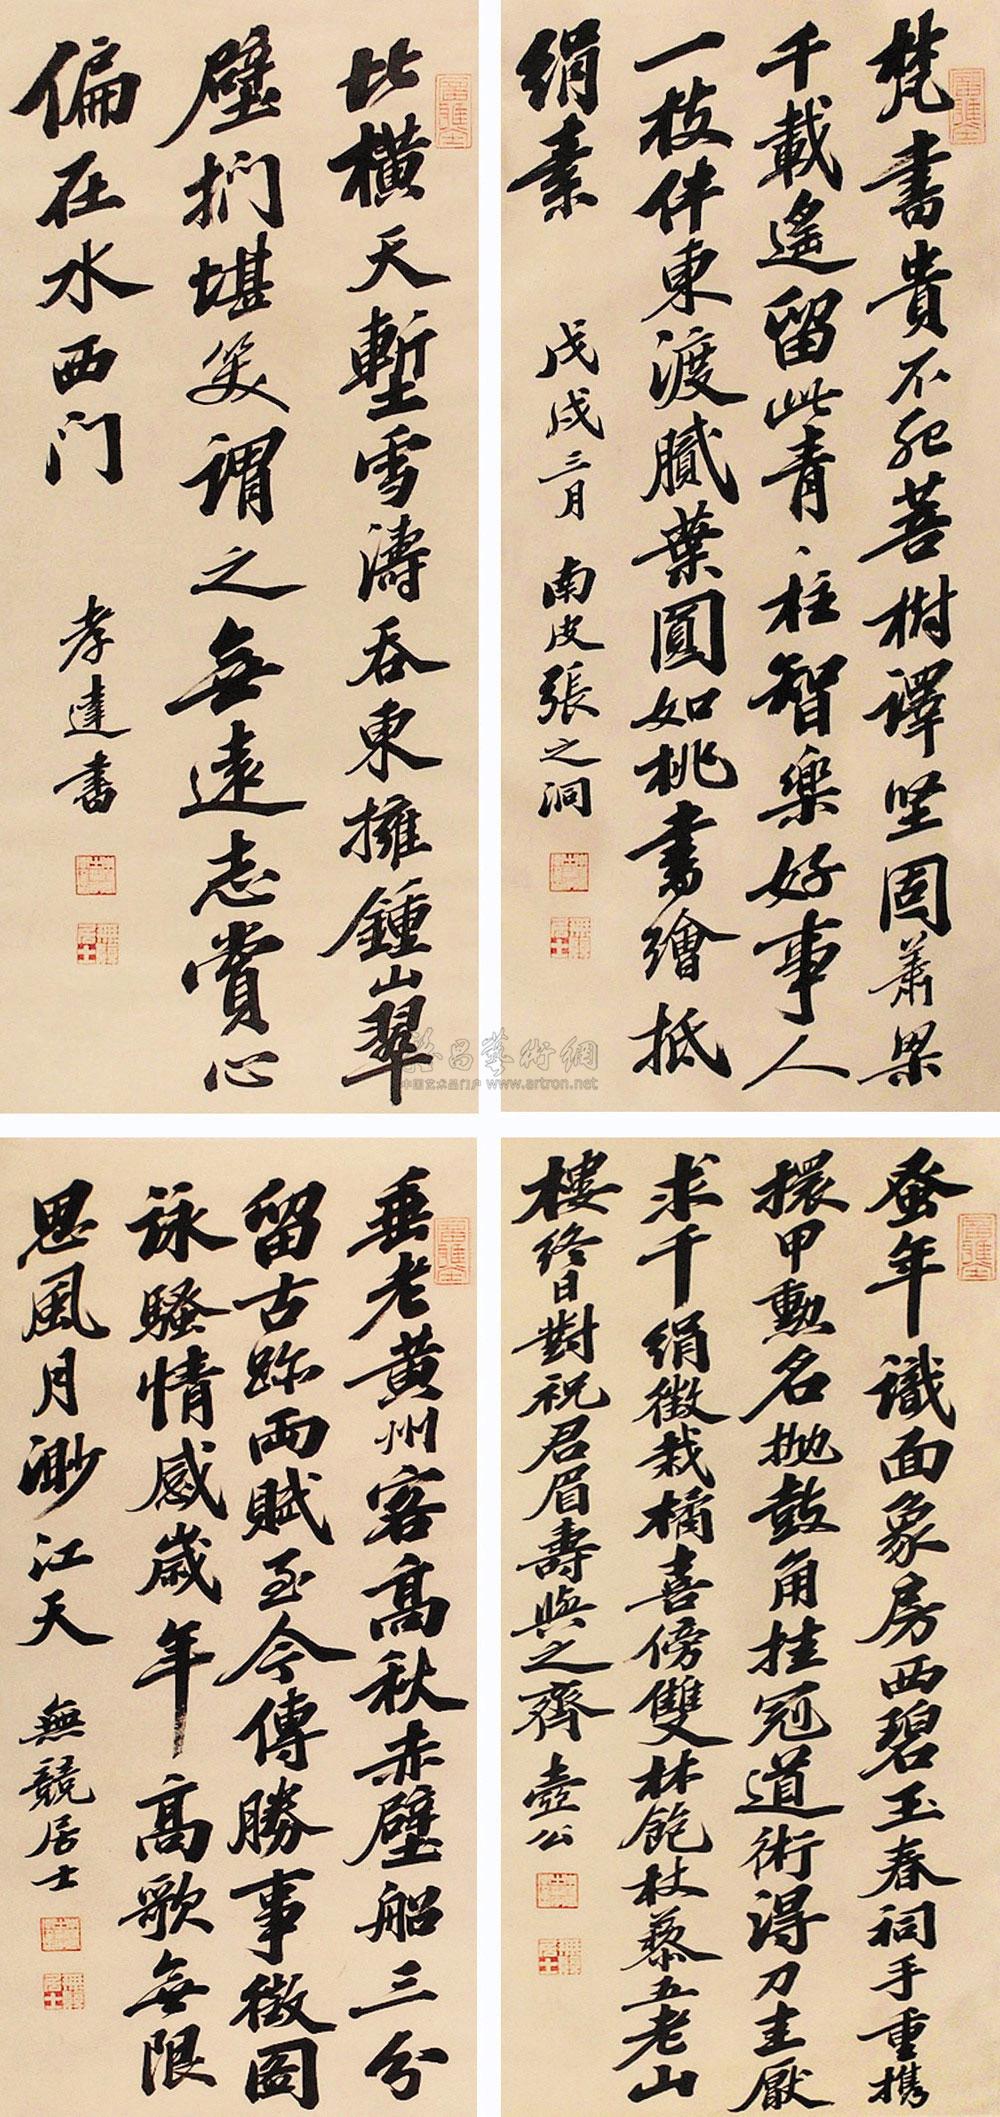 梵書貴不死菩樹譯堅固蕭梁
千載遙留此青〻柱智樂好事人
一枝伴東渡膩葉圓如桃書繪抵
絹素
戊戌三月 南皮張之洞
比橫天塹雪濤吞東擁鍾山翠
壁捫堪笑謂之無遠志賞心
偏在水西门
孝達書
蚤年識面象房西碧玉春祠手重携
擐甲勳名抛鼓角挂冠道術得刀圭厭
求千絹徵栽橘喜傍雙林飽杖藜五老山
樓終日對祝君眉壽與之齊 壺公
垂老黄州客高秋赤壁船三分
留古跡兩賦至今傳勝事徵圖
詠騷情感歲年高歌無限
思風月渺江天
無競居士
中国艺术品门户 www.artron.net